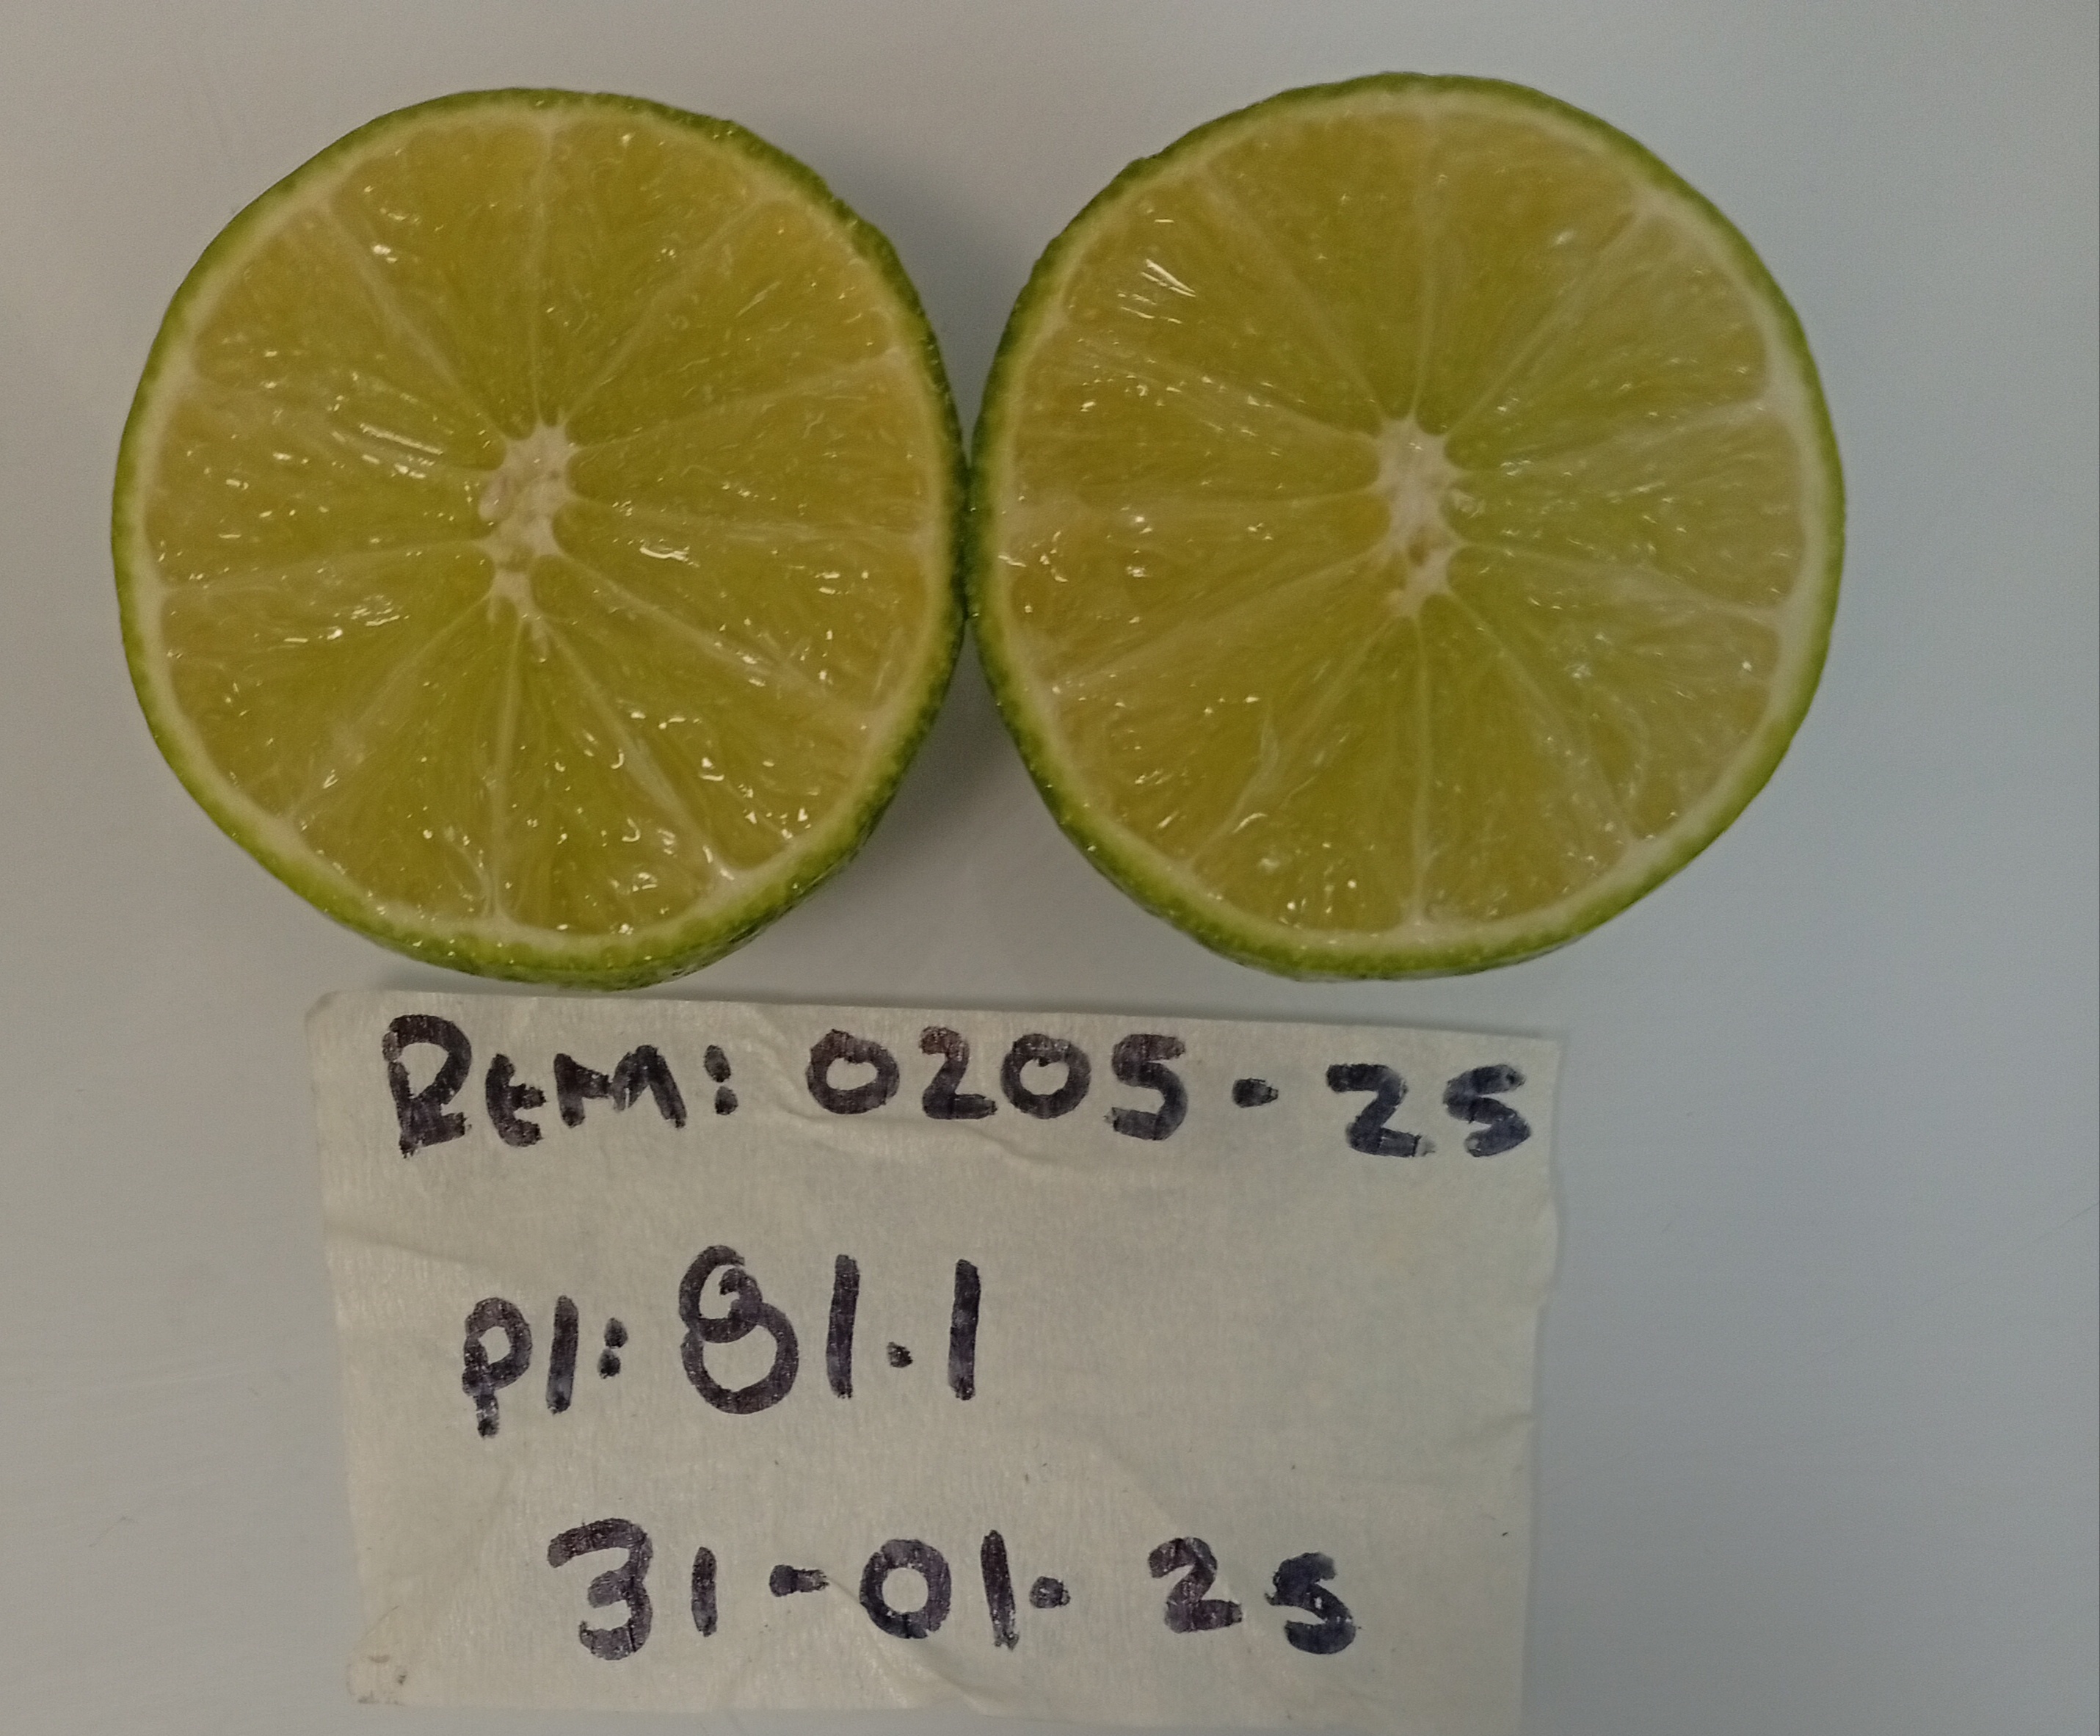 Rem: 0205-25
Pl: 81.1
31-01-25